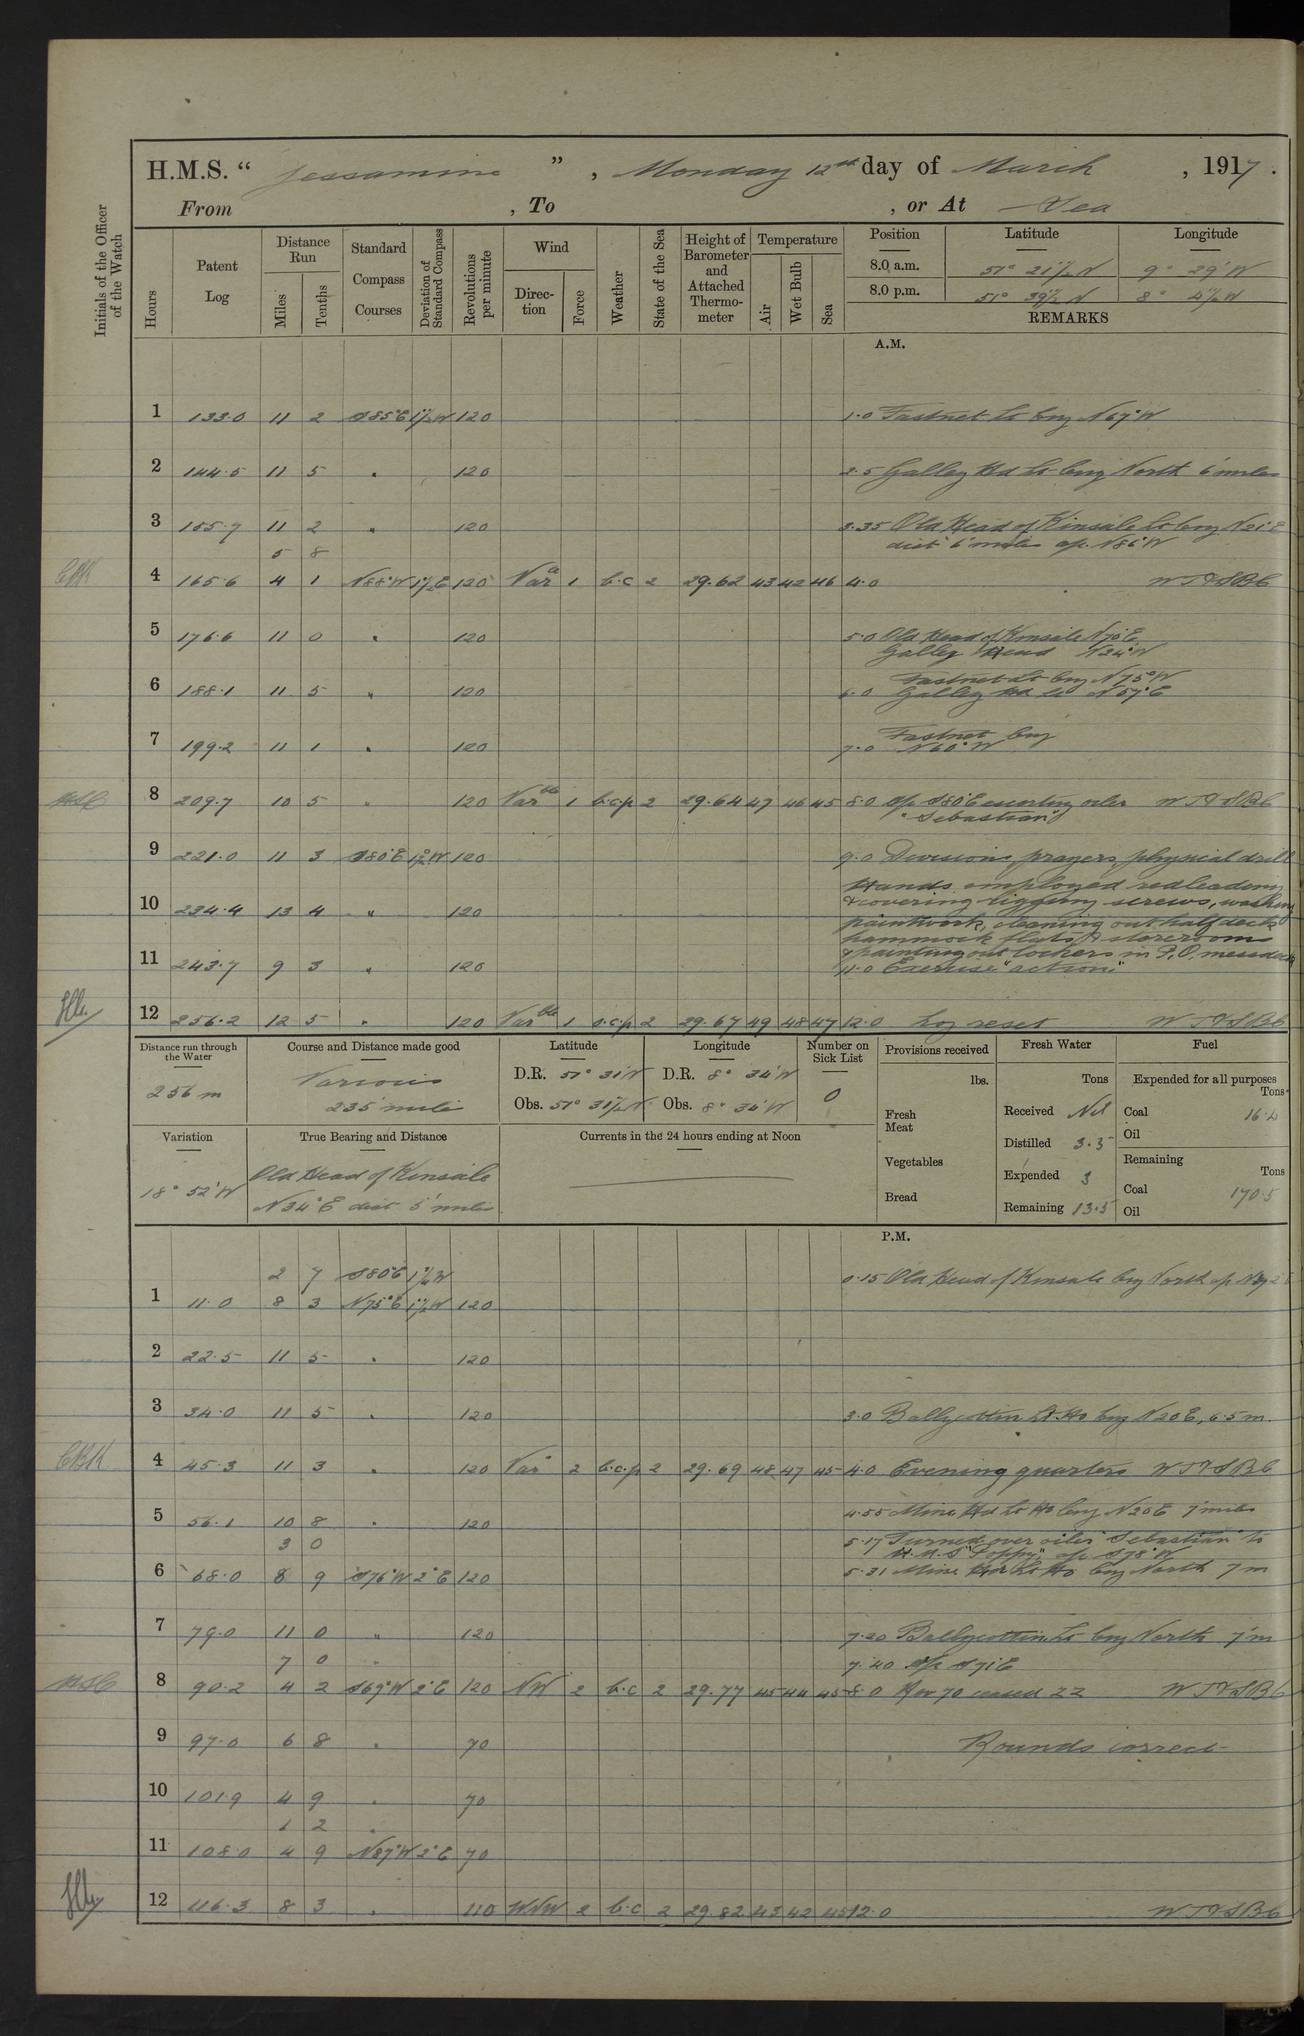 H.M.S. “ Jessamine ” , Monday 12th day of March , 1917 .
From , To , or At Sea
Initials of the Officer of the Watch
Hours Patent Log Distance Run Miles Tenths Standard Compass Courses Deviation of Standard Compass Revolutions per minute Wind Direction Force Weather State of the Sea Height of Barometer and Attached Thermometer Temperature Air Wet Bulb Sea Position Latitude Longitude
8.0 a.m. 51° 21½ N 9° 29' W
8.0 p.m. 51° 39½ N 8° 4½ W
REMARKS
A.M.
1 133.0 11 2 S85°E 1½W 120 1.0 Fastnet Lt brg N67°W
2 144.5 11 5 " 120 2.5 Galley Hd Lt brg North 6 miles
3 155.7 11 2 " 120 3.35 Old Head of Kinsale Lt brg N21°E
5 8 dist 6 miles a/c N86°W
4 165.6 4 1 N88°W 1½E 120 Var 1 b.c 2 29.62 43 42 46 4.0 W T & SBC
5 176.6 11 0 " 120 5.0 Old Head of Kinsale N70°E
Galley Head N34°W
Fastnet Lt brg N75°W
6 188.1 11 5 " 120 6.0 Galley Hd Lt N57°E
Fastnet brg
7 199.2 11 1 " 120 7.0 N60°W
8 209.7 10 5 " 120 Varble 1 b.c.p 2 29.64 47 46 45 8.0 a/c S80°E escorting oiler W T & SBC
"Sebastian"
9 221.0 11 3 S80°E 1½°W 120 9.0 Divisions prayers, physical drill
Hands employed redleading
& covering rigging screws, washing
10 234.4 13 4 " 120 paintwork, cleaning out half deck
hammock flats & storerooms
11 243.7 9 3 " 120 & painting out lockers in P.O. messdeck
11.0 Exercise "action"
12 256.2 12 5 " 120 Varble 1 o.c.p 2 29.67 49 48 47 12.0 Log reset W T & SBC
Distance run through the Water Course and Distance made good Latitude Longitude Number on Sick List Provisions received Fresh Water Fuel
256 m Various 235 miles D.R. 51° 31'N D.R. 8° 34'W 0
Obs. 51° 31½'N Obs. 8° 34'W
lbs. Tons Expended for all purposes Tons
Fresh Meat Received Nil Coal
Oil
Variation True Bearing and Distance Currents in the 24 hours ending at Noon Distilled 3.5 Remaining Tons
18° 52'W Old Head of Kinsale Vegetables Expended 3 Coal 170.5
N34°E dist 5 miles Bread Remaining 13.5 Oil
P.M.
2 7 S80°E 1½W 0.15 Old Head of Kinsale brg North a/c
1 11.0 8 3 N75°E 1½W 120
2 22.5 11 5 " 120
3 34.0 11 5 " 120 3.0 Ballycotton Lt Ho brg N20E, 6.5 m.
CBK 4 45.3 11 3 " 120 Var 2 b.c.p 2 29.69 48 47 45 4.0 Evening quarters W T & SBC
4.55 Mine Hd Lt Ho brg N20E 7 miles
5 56.1 10 8 " 120
3 0 5.17 Turned over oiler "Sebastian" to
H.M.S "Poppy", a/c S78°W
6 68.0 8 9 S76°W 2°E 120 5.31 Mine Hd Lt Ho brg North 7 m
7 79.0 11 0 " 120 7.20 Ballycotton Lt brg North 7 m
7 0 " 7.40 a/c S71E
8 90.2 4 2 S69°W 2°E 120 NW 2 b.c 2 29.77 45 44 45 8.0 Rev 70 ceased ZZ W T & SBC
9 97.0 6 8 " 70 Rounds correct
10 101.9 4 9 " 70
1 2 "
11 108.0 4 9 N87°W 2°E 70
12 116.3 8 3 " 110 WNW 2 b.c 2 29.82 43 42 45 12.0 W T & SBC